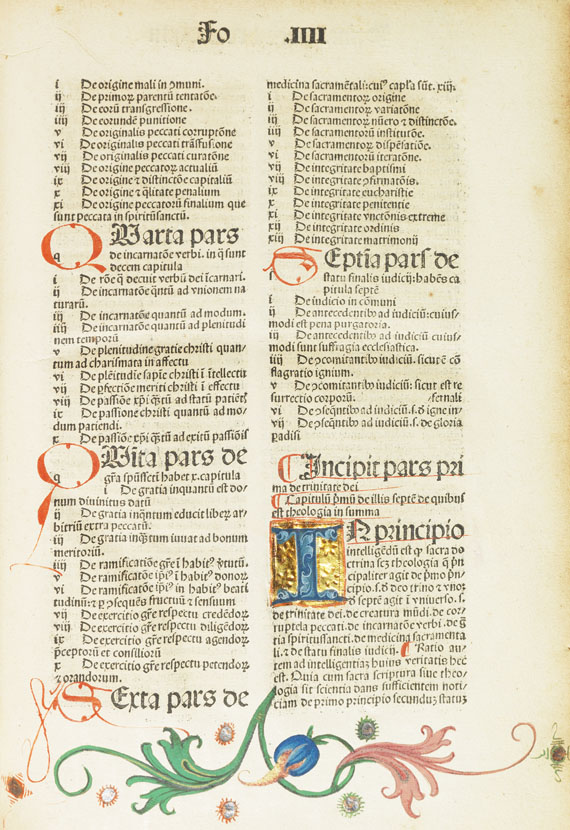 Fo .IIII
i De origine mali in ꝯmuni.
ij De primoꝝ parentũ tentatõe.
iij De eorũ transgressione.
iiij De eorundẽ punitione
v De originalis peccati corruptõne
vi De originalis peccati trãsfusione
vij De originalis peccati curatõne
viij De origine peccatoꝝ actualiũ
ix De origine ⁊ distinctõe capitaliũ
x De origine ⁊ q̃litate penalium
xi De origine peccatorũ finalium que
sunt peccata in spiritũ sanctũ.
QUarta pars
q de incarnatõe verbi. in q̃ sunt
decem capitula
i De rõe q̃ decuit verbũ dei ĩcarnari.
ij De incarnatõe q̃ntũ ad vnionem na
turarũ.
iij De incarnatõe quantũ ad modum.
iiij De incarnatõe quantũ ad plenitudi
nem temporũ
v De plenitudine gratie christi quan-
tum ad charismata in affectu
vi De plẽitudie sapiẽ christi ĩ ĩtellectu
vij De ꝑfectiõe meriti christi ĩ effectu
viij De passiõe xp̃i q̃tũ ad statũ patiẽt̃
ix De passiõe christi quantũ ad mo-
dum patiendi.
x De passiõe xp̃i q̃tũ ad exitũ passiõis
QUita pars de
q gr̃a sp̃ussc̃ti habet x. capitula
i De gratia inquantũ est do-
num diuinitus datũ
ij De gratia inq̃ntum educit liberꝝ ar-
bitriũ extra peccatũ.
iij De gratia inq̃tum iuuat ad bonum
meritoriũ.
iiij De ramificatiõe gr̃e ĩ habit᷒ ꝟtutũ.
v De ramificatõe ip̃i᷒ ĩ habit᷒ donoꝝ
vi De ramificatõe ip̃i᷒ in habit᷒ beati
tudinũ: ⁊ ꝑ ꝯseq̃ẽs fructuũ ⁊ sensuum
vij De exercitio gr̃e respectu credẽdoꝝ
viij De exercitio gr̃e respectu diligẽdoꝝ
ix De exercitio gr̃e respectu agendoꝝ
p̃ceptorũ et consiliorũ
x De exercitio gr̃e respectu petendoꝝ
⁊ orandorum.
SExta pars de
medicina sacramẽtali: cui᷒ capl̃a sũt. xiij.
i De sacramentoꝝ origine
ij De sacramentoꝝ variatõne
iij De sacramentoꝝ nũero ⁊ distinctõe.
iiij De sacramentorũ institutõe.
v De sacramentoꝝ dispẽsatiõe.
vi De sacramentorũ iteratõne.
vij De integritate baptismi
viij De integritate ꝯfirmatõis.
ix De integritate eucharistie
x De integritate penitentie
xi De integritate vnctonis extreme
xij De integritate ordinis
xiij De integritate matrimonij
SEptĩa pars de
s statu finalis iudicij: habẽs ca
pitula septẽ
i De iudicio in cõmuni
ij De antecedentib᷒ ad iudiciũ: cuius-
modi est pena purgatoria.
iij De antecedentib᷒ ad iudiciũ cuius-
modi sunt suffragia ecclesiastica.
iiij De ꝯcomitantib᷒ iudiciũ. sicut ẽ cõ
flagratio ignium.
v De ꝯcomitantib᷒ iudiciũ: sicut est re
surrectio corporũ. /fernali
vi De ꝯseq̃ntib᷒ ad iudiciũ: s. d̃ igne in-
vij De ꝯseq̃ntib᷒ ad iudiciũ: s. de gloria
ꝑadisi
Incipit pars pri
ma de trinitate dei
Capitulũ p̃mũ de illis septẽ de quibus
est theologia in summa
IN principio
intelligẽdũ est ꝙ sacra do
ctrina scꝫ theologia q̃ p̃n
cipaliter agit de p̃mo p̃n
cipio. s. d̃ deo trino ⁊ vno:
d̃ septẽ agit ĩ vniuerso. s.
de trinitate dei. de creatura mũdi. de cor
ruptela peccati. de incarnatõe verbi. de g̃
tia spiritussancti. de medicina sacramenta
li. ⁊ de statu finalis iudicij. Ratio au-
tem ad intelligentiã huius veritatis hec
est. Quia cum sacra scriptura siue theo-
logia sit scientia dans sufficientem noti-
ciam de primo principio secundũ statuꝫ